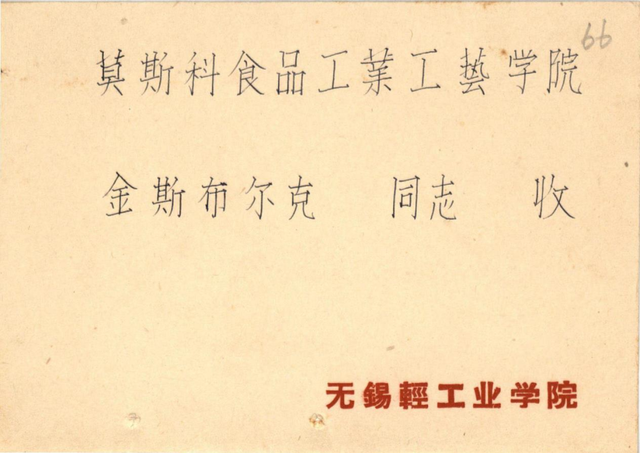 66
莫斯科食品工業工藝学院
金斯布尔克 同志 收
无錫輕工业学院